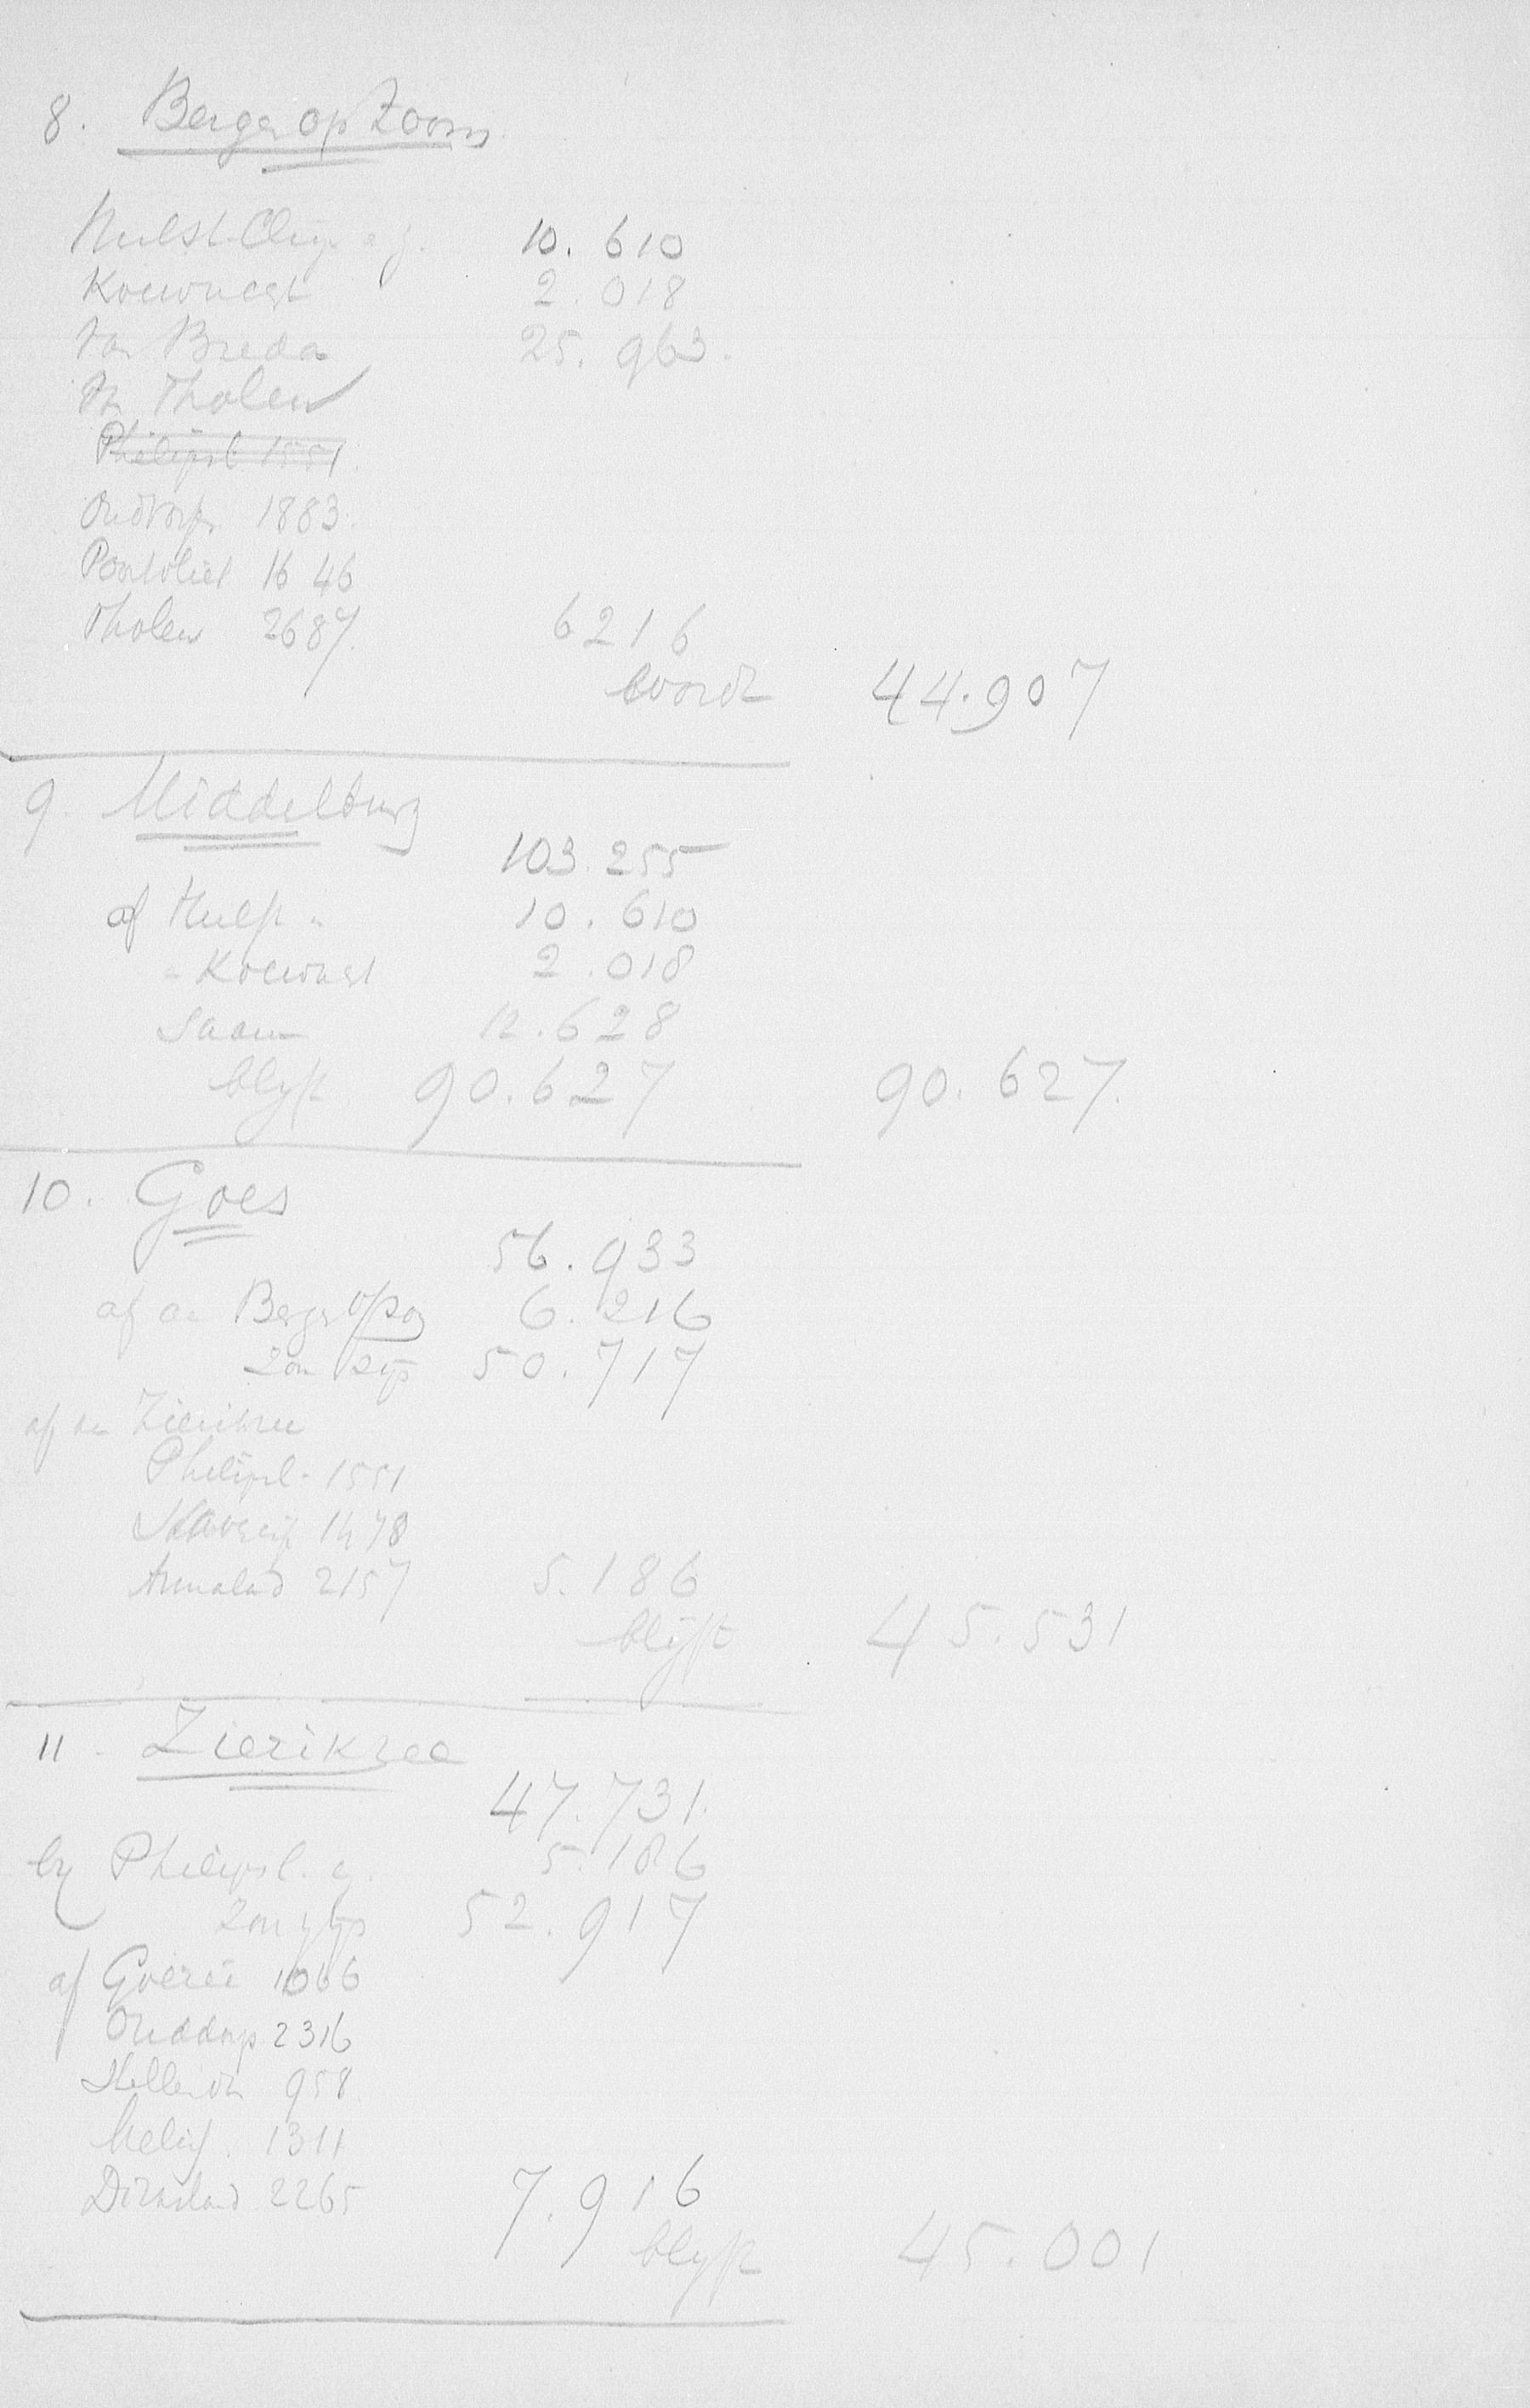 8. Bergen op Zoom
Hulst 10.610
Koewacht 2.018
van Breda 25.963.
Tholen
Philipsl 1551.
Oudvosm 1883.
Poortvliet 1646
Tholen 2687. 6216
wordt 44.907
9. Middelburg
103.255
af Hulst " 10.610
" Koewacht 2.018
Saam 12.628
blyft 90.627 90.627.
10. Goes
56.933
af aan Bergen op Zoom 6.216
zou zijn 50.717
af aan Zierikzee
Philipsl - 1551
Stavenisse 1478
Annaland 2157 5.186
blijft 45.531
11 - Zierikzee
47.731.
by Philipsl. 5.186
zou zijn 52.917
af Goeree 1066
Ouddorp 2316
Stellendam 958
Melis. 1311
Dirksland 2265 7.916
blyft 45.001